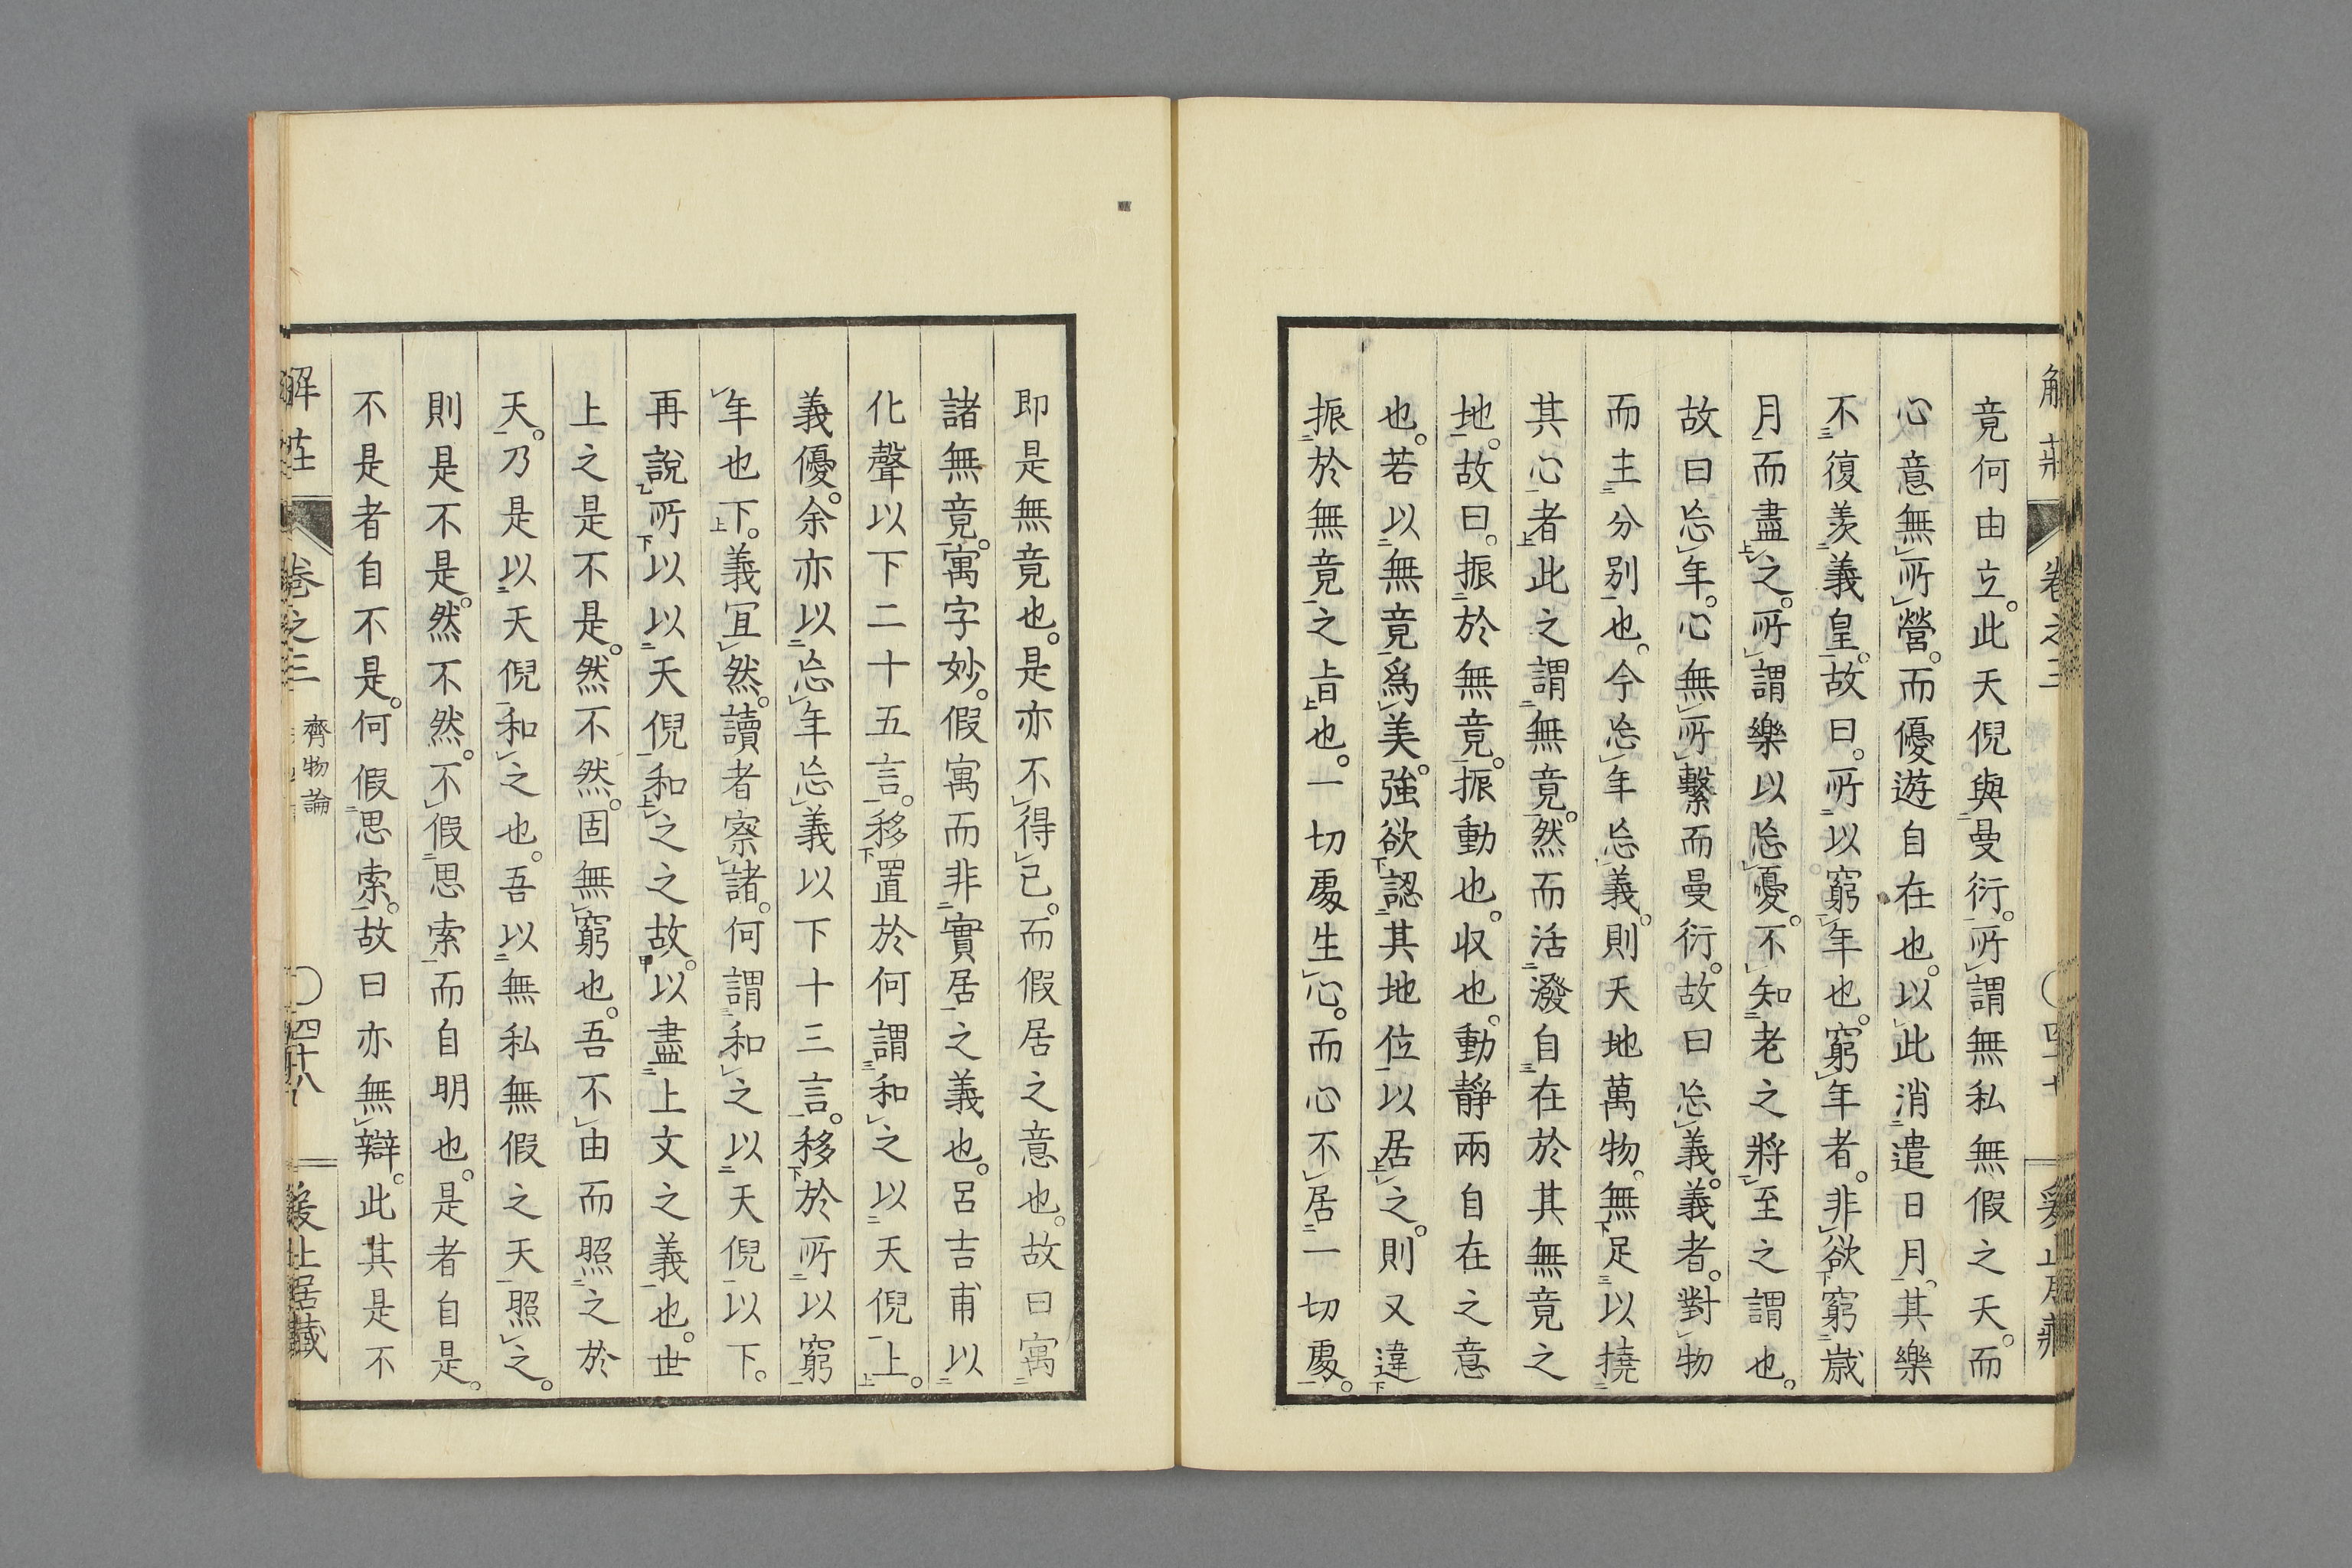 竟何由立。此天倪與曼衍。所謂無私無假之天。而
心意無所營。而優遊自在也。以此消遣日月。其樂
不復羨義皇。故曰。所以窮年也。窮年者。非欲窮歲
月而盡之。所謂樂以忘憂。不知老之將至之謂也。
故曰忘年。心無所繫而曼衍。故曰忘義。義者。對物
而主分別也。今忘年忘義。則天地萬物。無足以撓
其心者此之謂無竟。然而活潑自在於其無竟之
地。故曰。振於無竟。振動也。収也。動靜兩自在之意
也。若以無竟爲美。強欲認其地位以居之。則又違
振於無竟之旨也。一切處生心。而心不居一切處。
即是無竟也。是亦不得已。而假居之意也。故曰寓
諸無竟。寓字妙。假寓而非實居之義也。呂吉甫以
化聲以下二十五言。移置於何謂和之以天倪上。
義優。余亦以忘年忘義以下十三言。移於所以窮
年也下。義冝然。讀者察諸。何謂和之以天倪以下。
再說所以以天倪和之之故。以盡上文之義也。世
上之是不是。然不然。固無窮也。吾不由而照之於
天。乃是以天倪和之也。吾以無私無假之天照之。
則是不是。然不然。不假思索而自明也。是者自是。
不是者自不是。何假思索。故曰亦無辯。此其是不
解莊 卷之三 齊物論 〇四十八